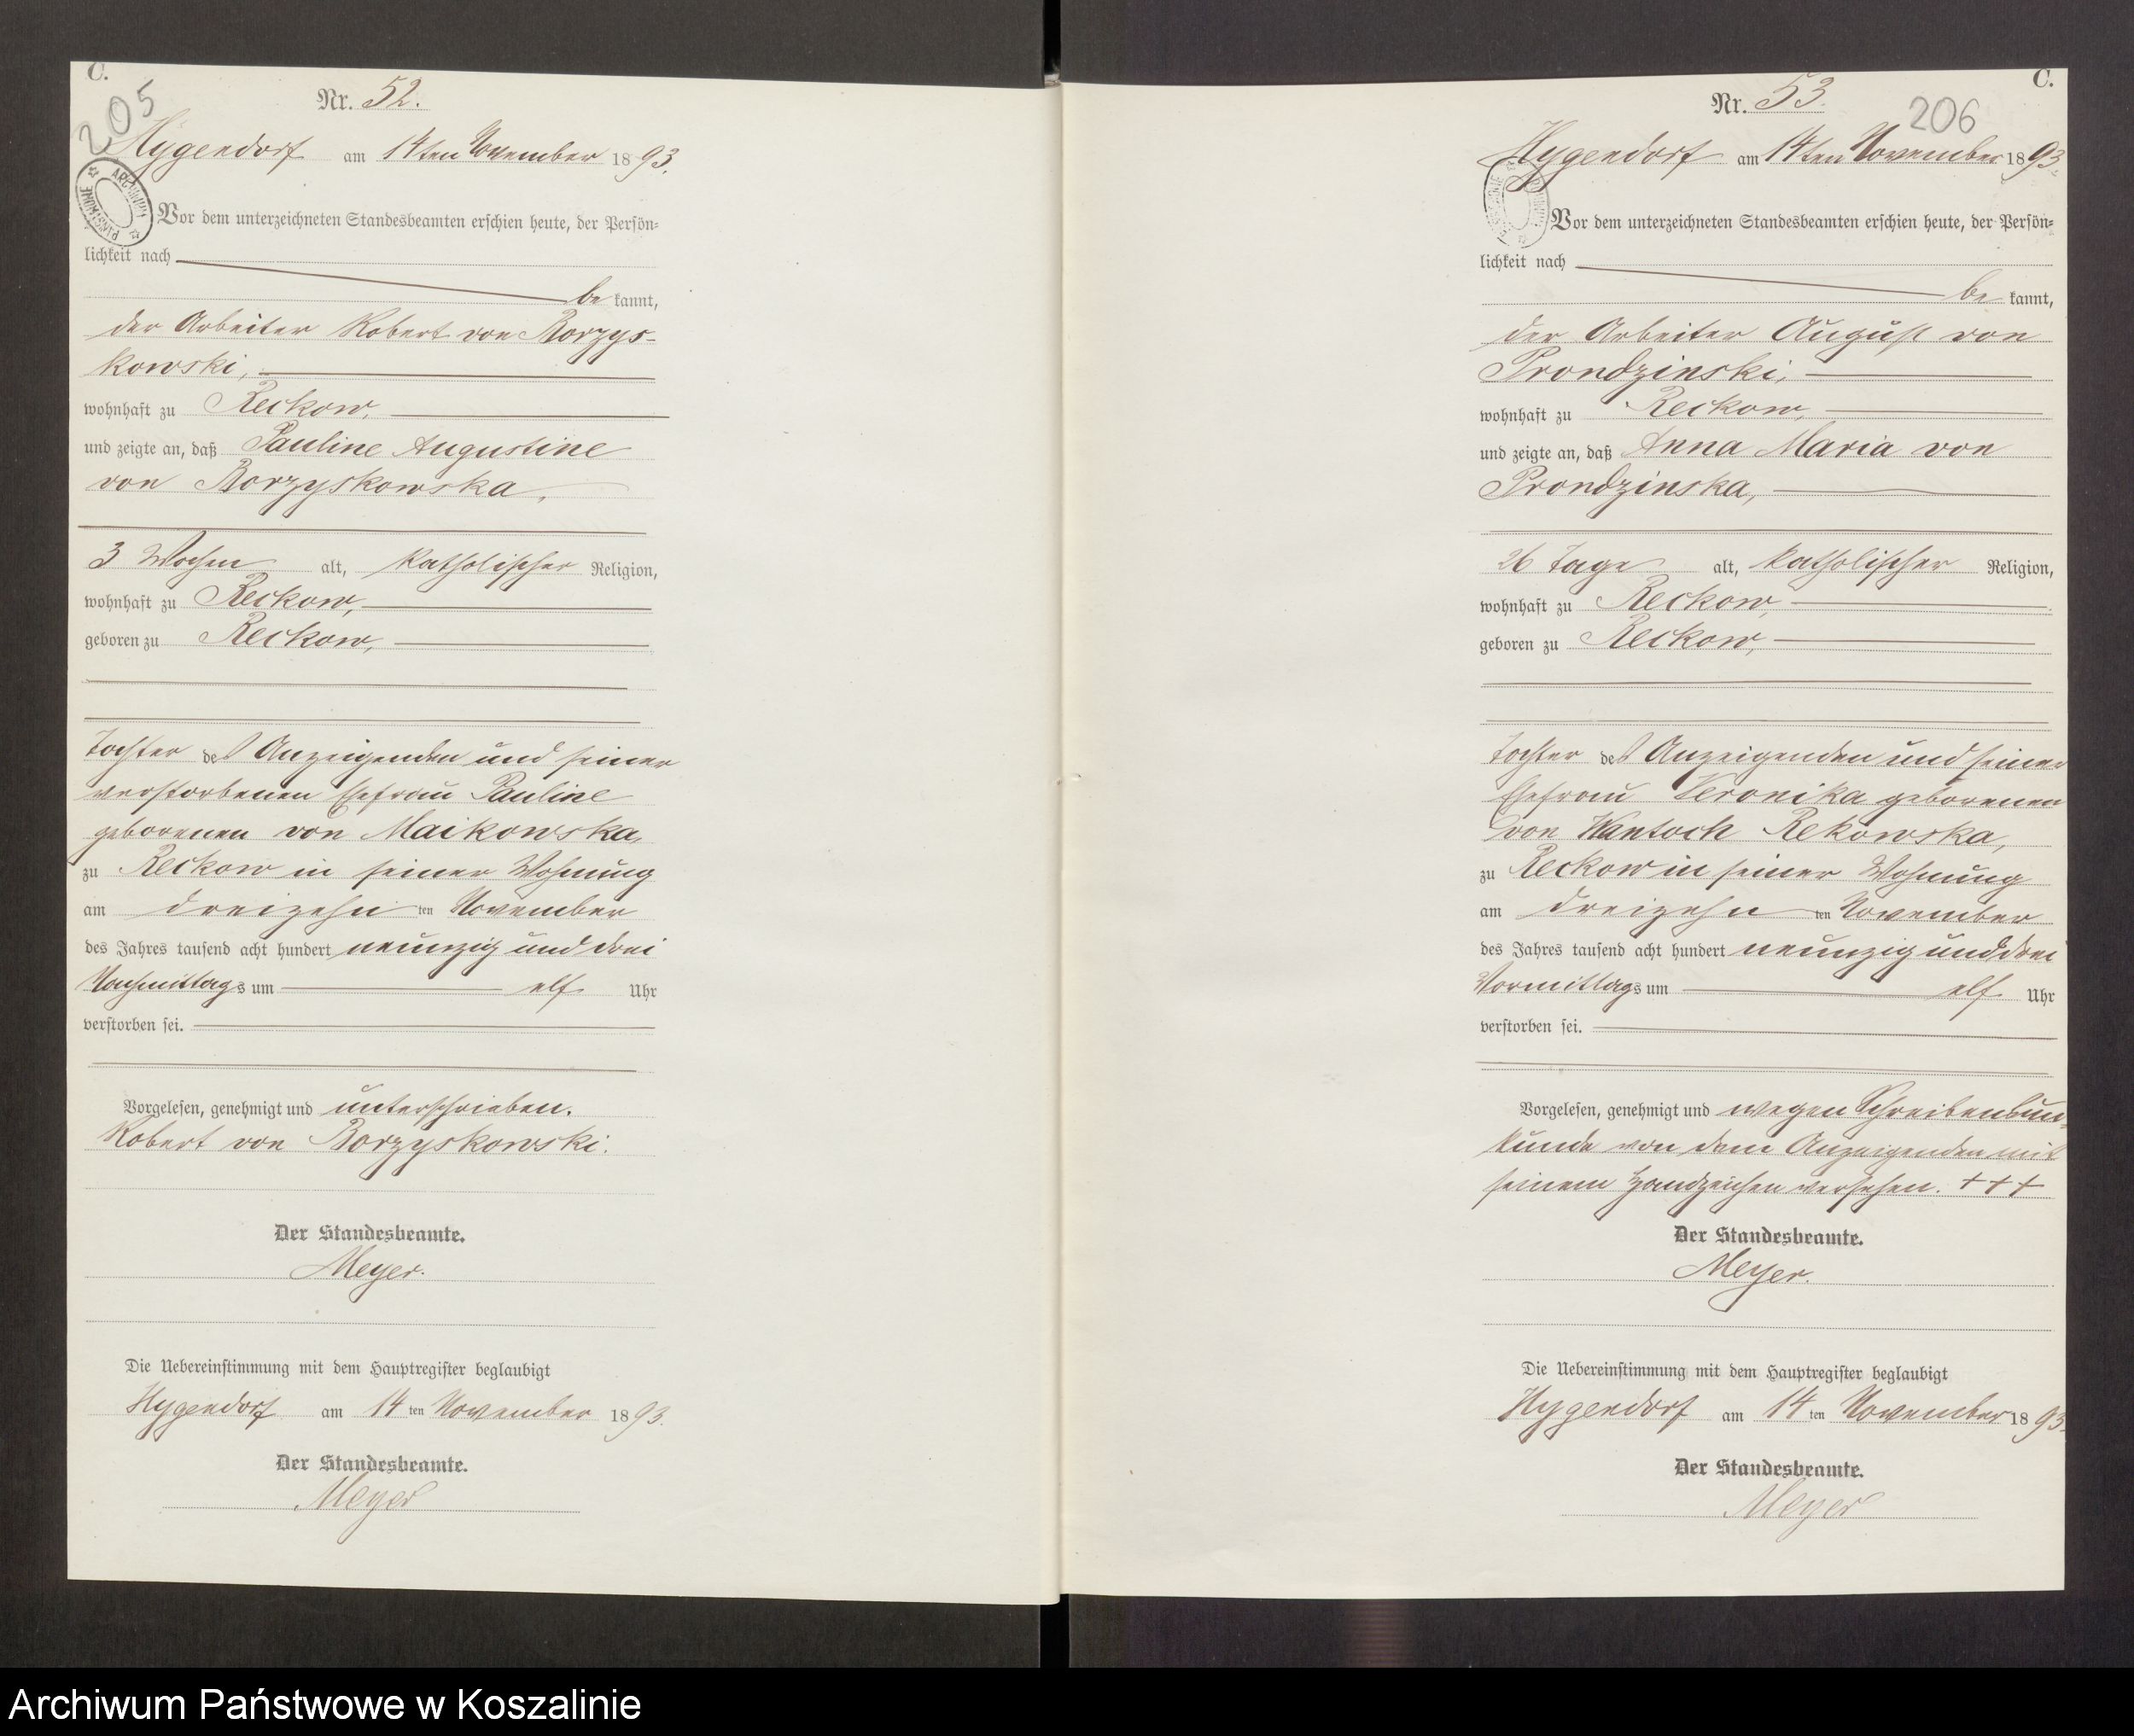 C.
205
Nr. 52.
Hygendorf am 14ten November 1893.
ARCHIWUM PAŃSTWOWE
Vor dem unterzeichneten Standesbeamten erschien heute, der Persön-
lichkeit nach
be kannt,
der Arbeiter Robert von Borzys-
kowski,
wohnhaft zu Reckow,
und zeigte an, daß Pauline Augustine
von Borzyskowska,
3 Wochen alt, katholischer Religion,
wohnhaft zu Reckow,
geboren zu Reckow,
Tochter des Anzeigenden und seiner
verstorbenen Ehefrau Pauline
geborenen von Maikowska,
zu Reckow in seiner Wohnung
am dreizehn ten November
des Jahres tausend acht hundert neunzig und drei
Nachmittags um elf Uhr
verstorben sei.
Vorgelesen, genehmigt und unterschrieben.
Robert von Borzyskowski.
Der Standesbeamte.
Meyer.
Die Uebereinstimmung mit dem Hauptregister beglaubigt
Hygendorf am 14 ten November 1893.
Der Standesbeamte.
Meyer
C.
Nr. 53.
206
Hygendorf am 14ten November 1893.
Vor dem unterzeichneten Standesbeamten erschien heute, der Persön-
lichkeit nach
be kannt,
der Arbeiter August von
Prondzinski,
wohnhaft zu Reckow,
und zeigte an, daß Anna Maria von
Prondzinska,
26 Tage alt, katholischer Religion,
wohnhaft zu Reckow,
geboren zu Reckow,
Tochter des Anzeigenden und seiner
Ehefrau Veronika geborenen
von Wantoch Rekowska,
zu Reckow in seiner Wohnung
am dreizehn ten November
des Jahres tausend acht hundert neunzig und drei
Vormittags um elf Uhr
verstorben sei.
Vorgelesen, genehmigt und wegen Schreibensun-
kunde von dem Anzeigenden mit
seinem Handzeichen versehen. +++
Der Standesbeamte.
Meyer.
Die Uebereinstimmung mit dem Hauptregister beglaubigt
Hygendorf am 14 ten November 1893.
Der Standesbeamte.
Meyer
Archiwum Państwowe w Koszalinie